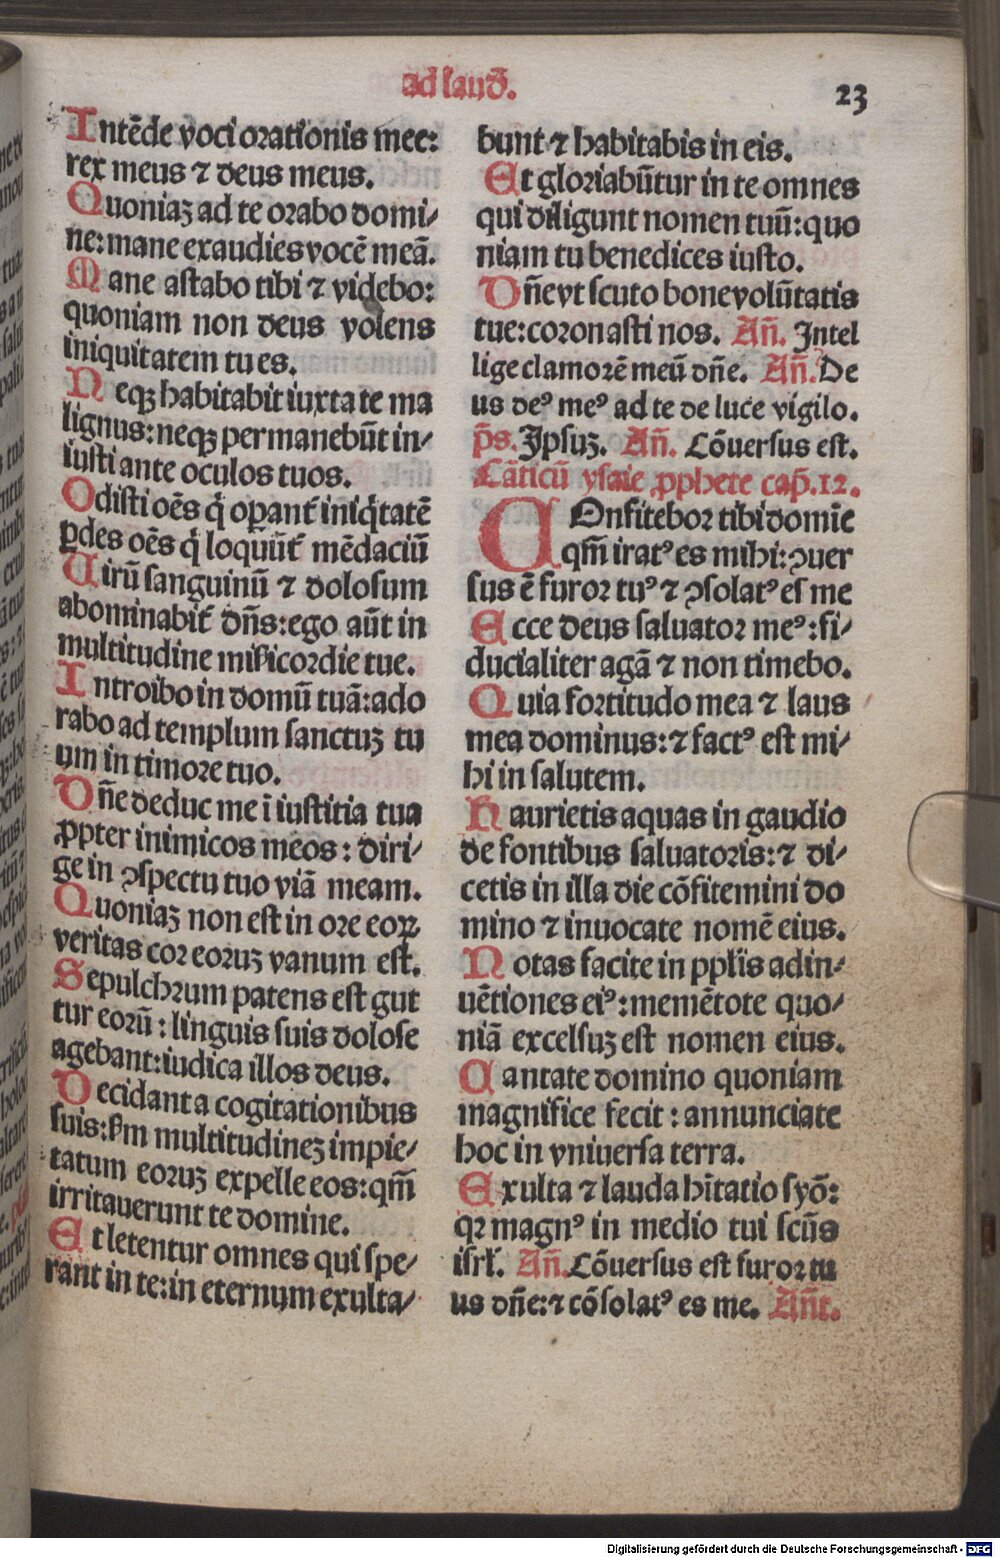 ad laud̄.
23
Intēde voci orationis mee:
rex meus ⁊ deus meus.
Quoniaꝫ ad te orabo domi/
ne: mane exaudies vocē meā.
Mane astabo tibi ⁊ videbo:
quoniam non deus volens
iniquitatem tu es.
Neqꝫ habitabit iuxta te ma
lignus: neqꝫ permanebūt in/
iusti ante oculos tuos.
Odisti oēs q̇ operant̄ iniq̇tatē
ꝑdes oēs q̇ loquūt̄ mēdaciū
Uirū sanguinū ⁊ dolosum
abominabit̄ dn̄s: ego aūt in
multitudine mīsicordie tue.
Introibo in domū tuā: ado
rabo ad templum sanctuꝫ tu
um in timore tuo.
Dn̄e deduc me ī iustitia tua
ꝓpter inimicos meos: diri/
ge in ꝯspectu tuo viā meam.
Quoniaꝫ non est in ore eoꝝ
veritas cor eoruꝫ vanum est.
Sepulchrum patens est gut
tur eorū: linguis suis dolose
agebant: iudica illos deus.
Decidant a cogitationibus
suis: ẜm multitudineꝫ impie/
tatum eoruꝫ expelle eos: qm̄
irritauerunt te domine.
Et letentur omnes qui spe/
rant in te: in eternum exulta/
bunt ⁊ habitabis in eis.
Et gloriabūtur in te omnes
qui diligunt nomen tuū: quo
niam tu benedices iusto.
Dn̄e vt scuto bone volūtatis
tue: coronasti nos. An̄. Intel
lige clamorē meū dn̄e. An̄. De
us deꝰ meꝰ ad te de luce vigilo.
p̄s. Ipsuꝫ. An̄. Cōuersus est.
Cāticū ysaie ꝓphete cap̄. 12.
COnfitebor tibi domīe
qm̄ iratꝰ es mihi: ꝯuer
sus ē furor tuꝰ ⁊ ꝯsolatꝰ es me
Ecce deus saluator meꝰ: fi/
ducialiter agā ⁊ non timebo.
Quia fortitudo mea ⁊ laus
mea dominus: ⁊ factꝰ est mi/
hi in salutem.
Haurietis aquas in gaudio
de fontibus saluatoris: ⁊ di/
cetis in illa die cōfitemini do
mino ⁊ inuocate nomē eius.
Notas facite in pplīs adin/
uētiones eiꝰ: memētote quo/
niā excelsuꝫ est nomen eius.
Cantate domino quoniam
magnifice fecit: annunciate
hoc in vniuersa terra.
Exulta ⁊ lauda hītatio syō:
qꝛ magnꝰ in medio tui scūs
isrl̄. An̄. Cōuersus est furor tu
us dn̄e: ⁊ cōsolatꝰ es me. An̄t.
Digitalisierung gefördert durch die Deutsche Forschungsgemeinschaft - DFG